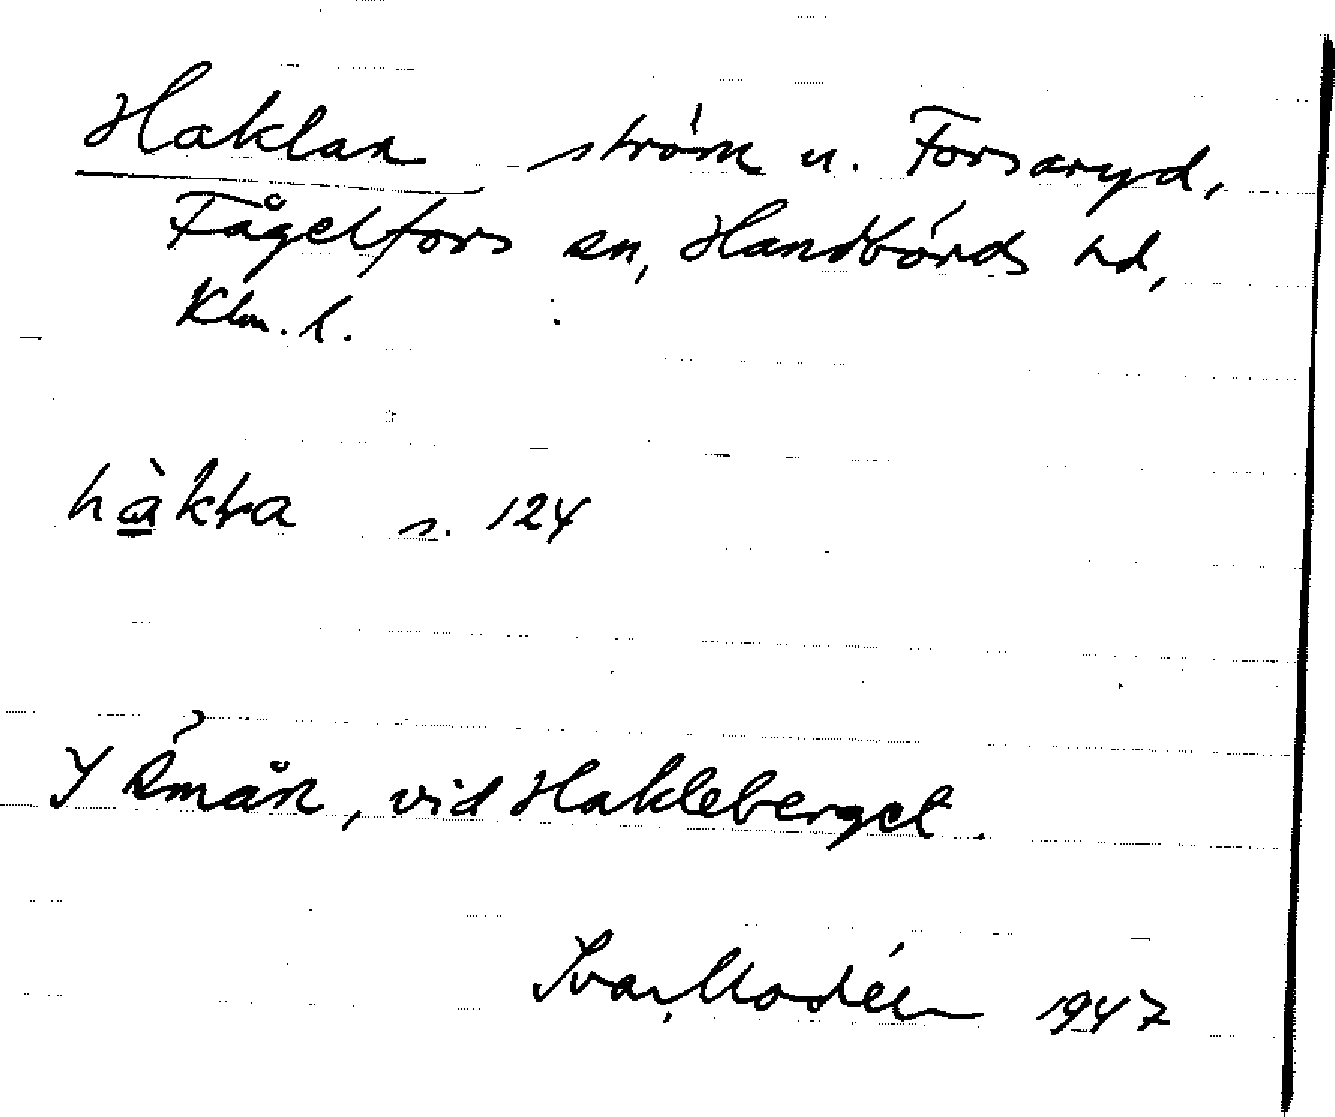 Haklan ström u. Forsaryd,
Fågelfors sn, Handbörds hd,
Klm. l.
hàkla s. 124
I Emån, vid Hakleberget.
Ivar Modéer 1947